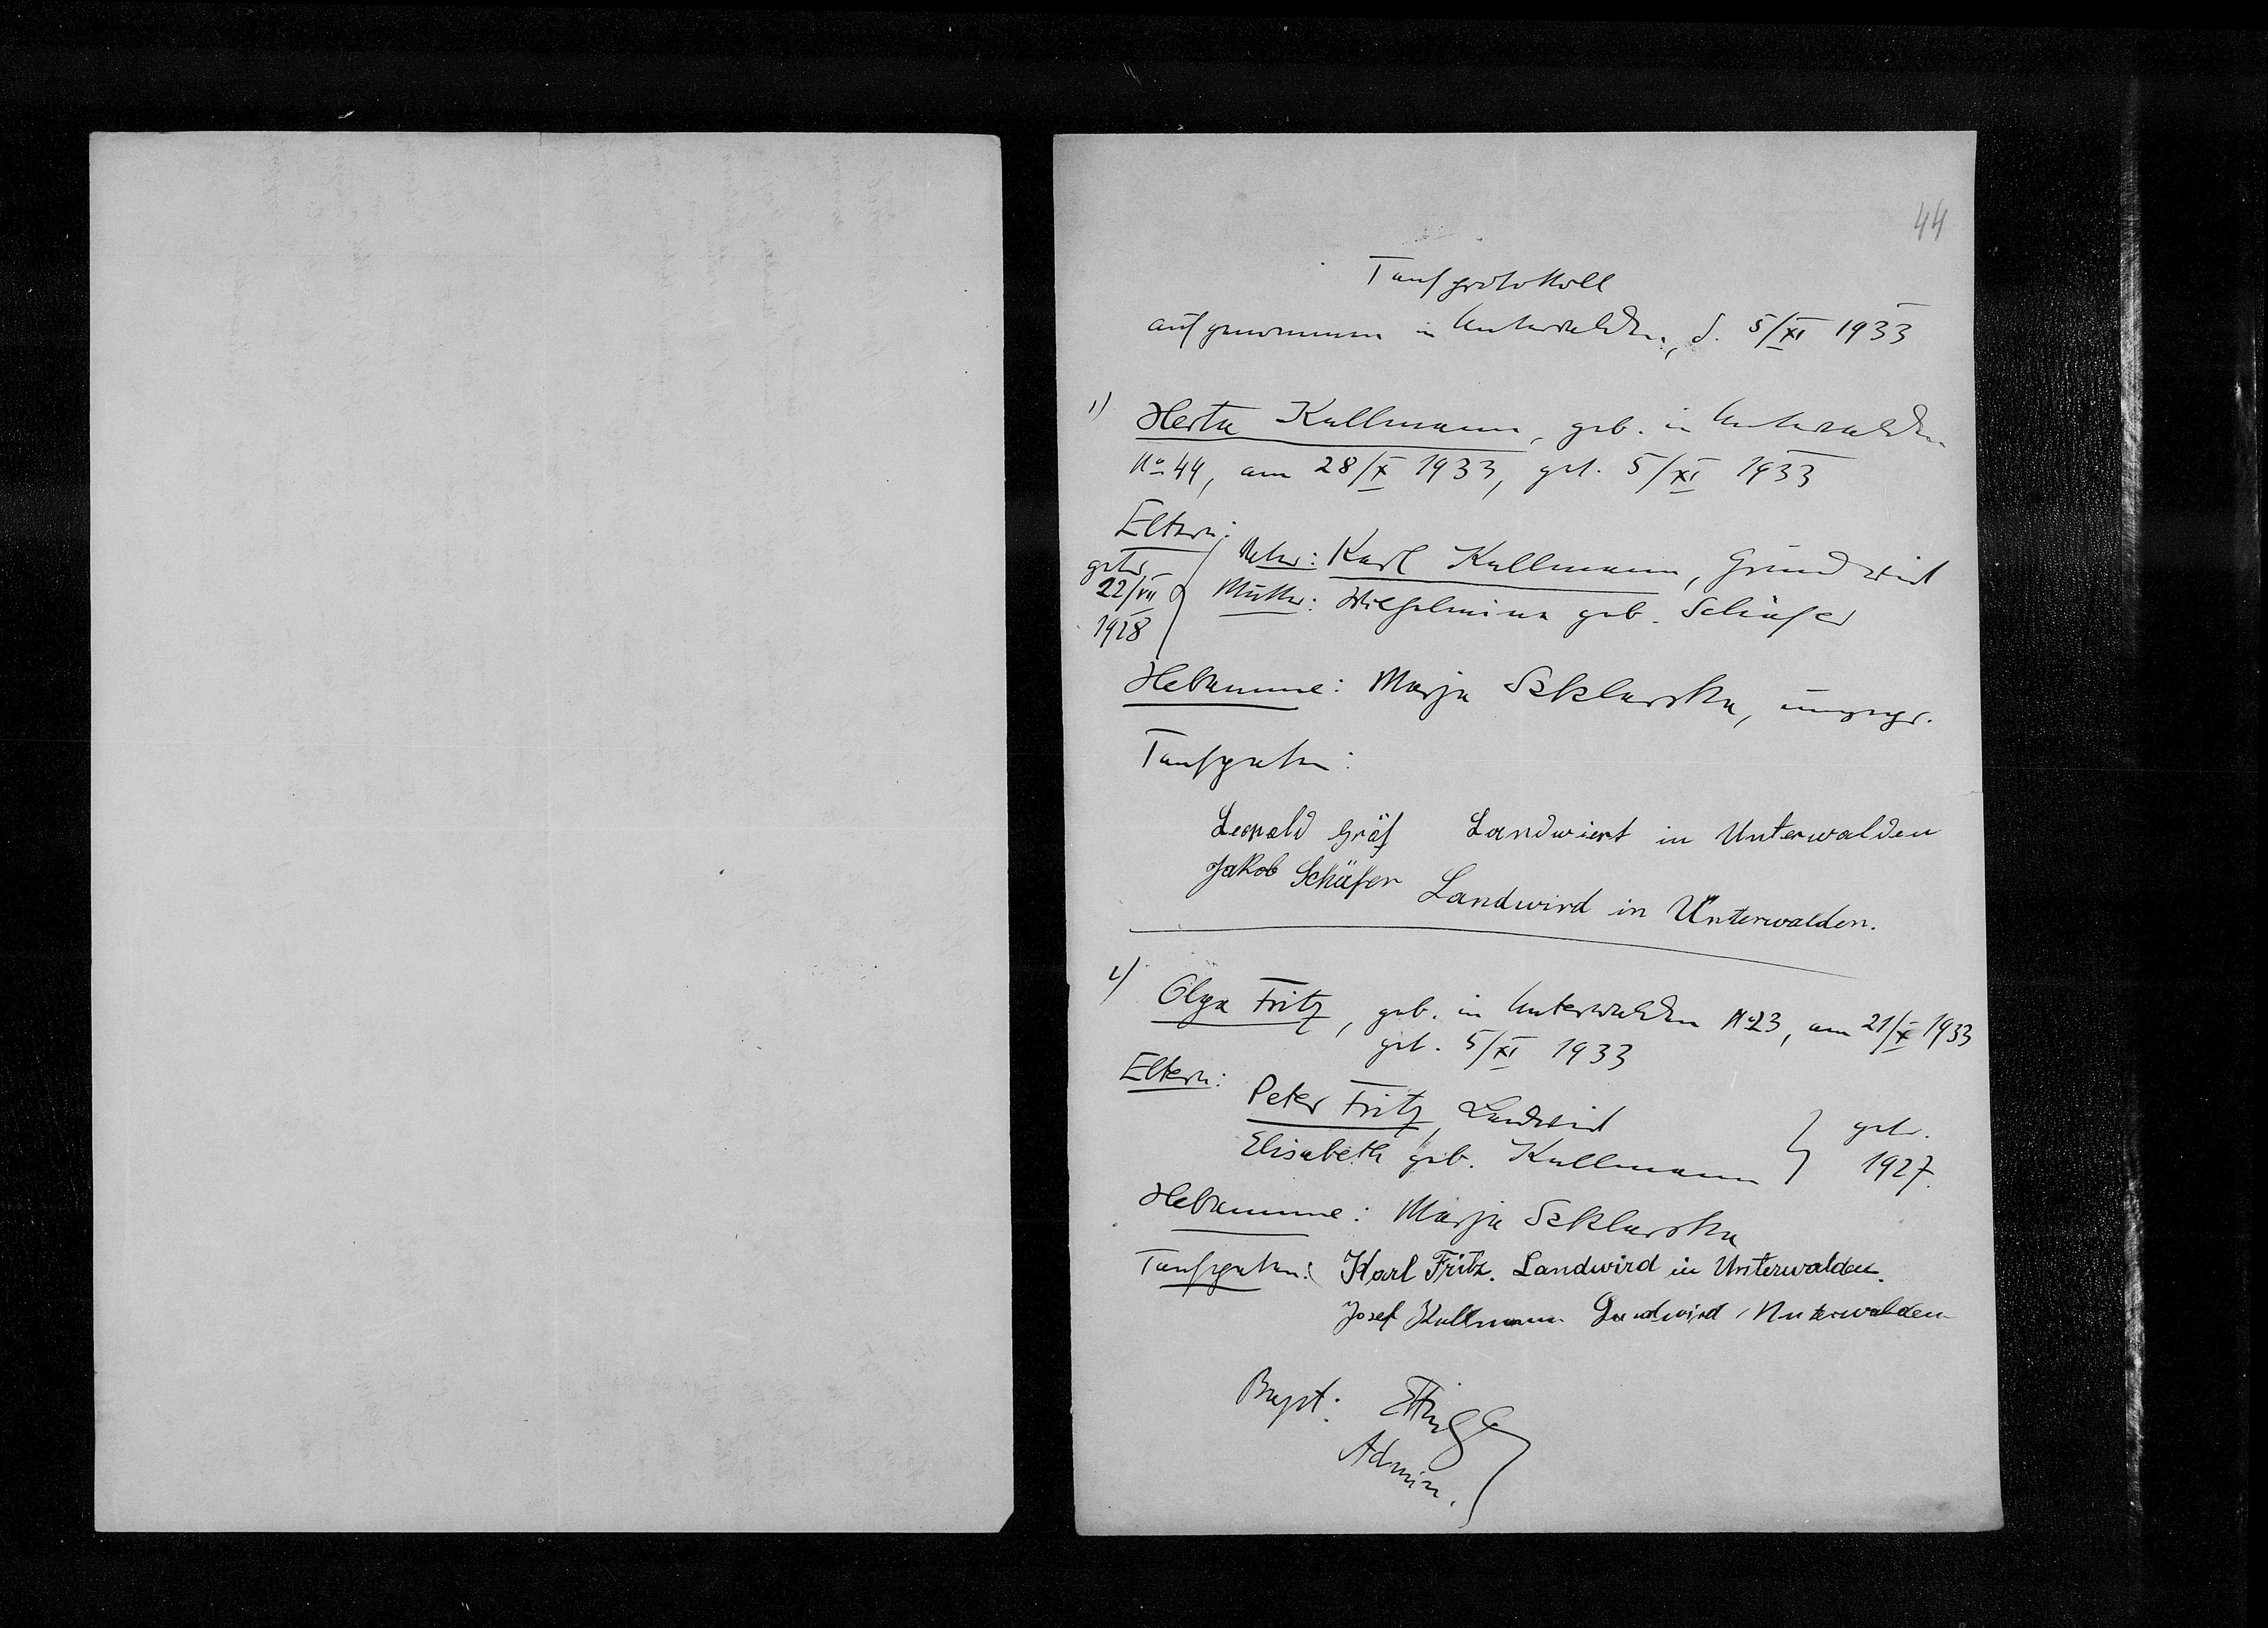 44
Taufprotokoll
aufgenommen in Unterwalden, d. 5/XI 1933
1) Herta Kullmann, geb. in Unterwalden
No 44, am 28/X 1933, get. 5/XI 1933
Eltern:
getr.
22/VII
1928
Vater: Karl Kullmann, Grundwirt
Mutter: Wilhelmina geb. Schäfer
Hebamme: Marja Szklarska, ungepr.
Taufpaten:
Leopold Gräf Landwiert in Unterwalden
Jakob Schäfer Landwird in Unterwalden.
2) Olga Fritz, geb. in Unterwalden No 23, am 21/X 1933
get. 5/XI 1933
Eltern:
Peter Fritz, Landwirt
Elisabeth geb. Kullmann
getr.
1927.
Hebamme: Marja Szklarska
Taufpaten: Karl Fritz. Landwird in Unterwalden.
Josef Kullmann Landwird Unterwalden
Bapt:
Admin.